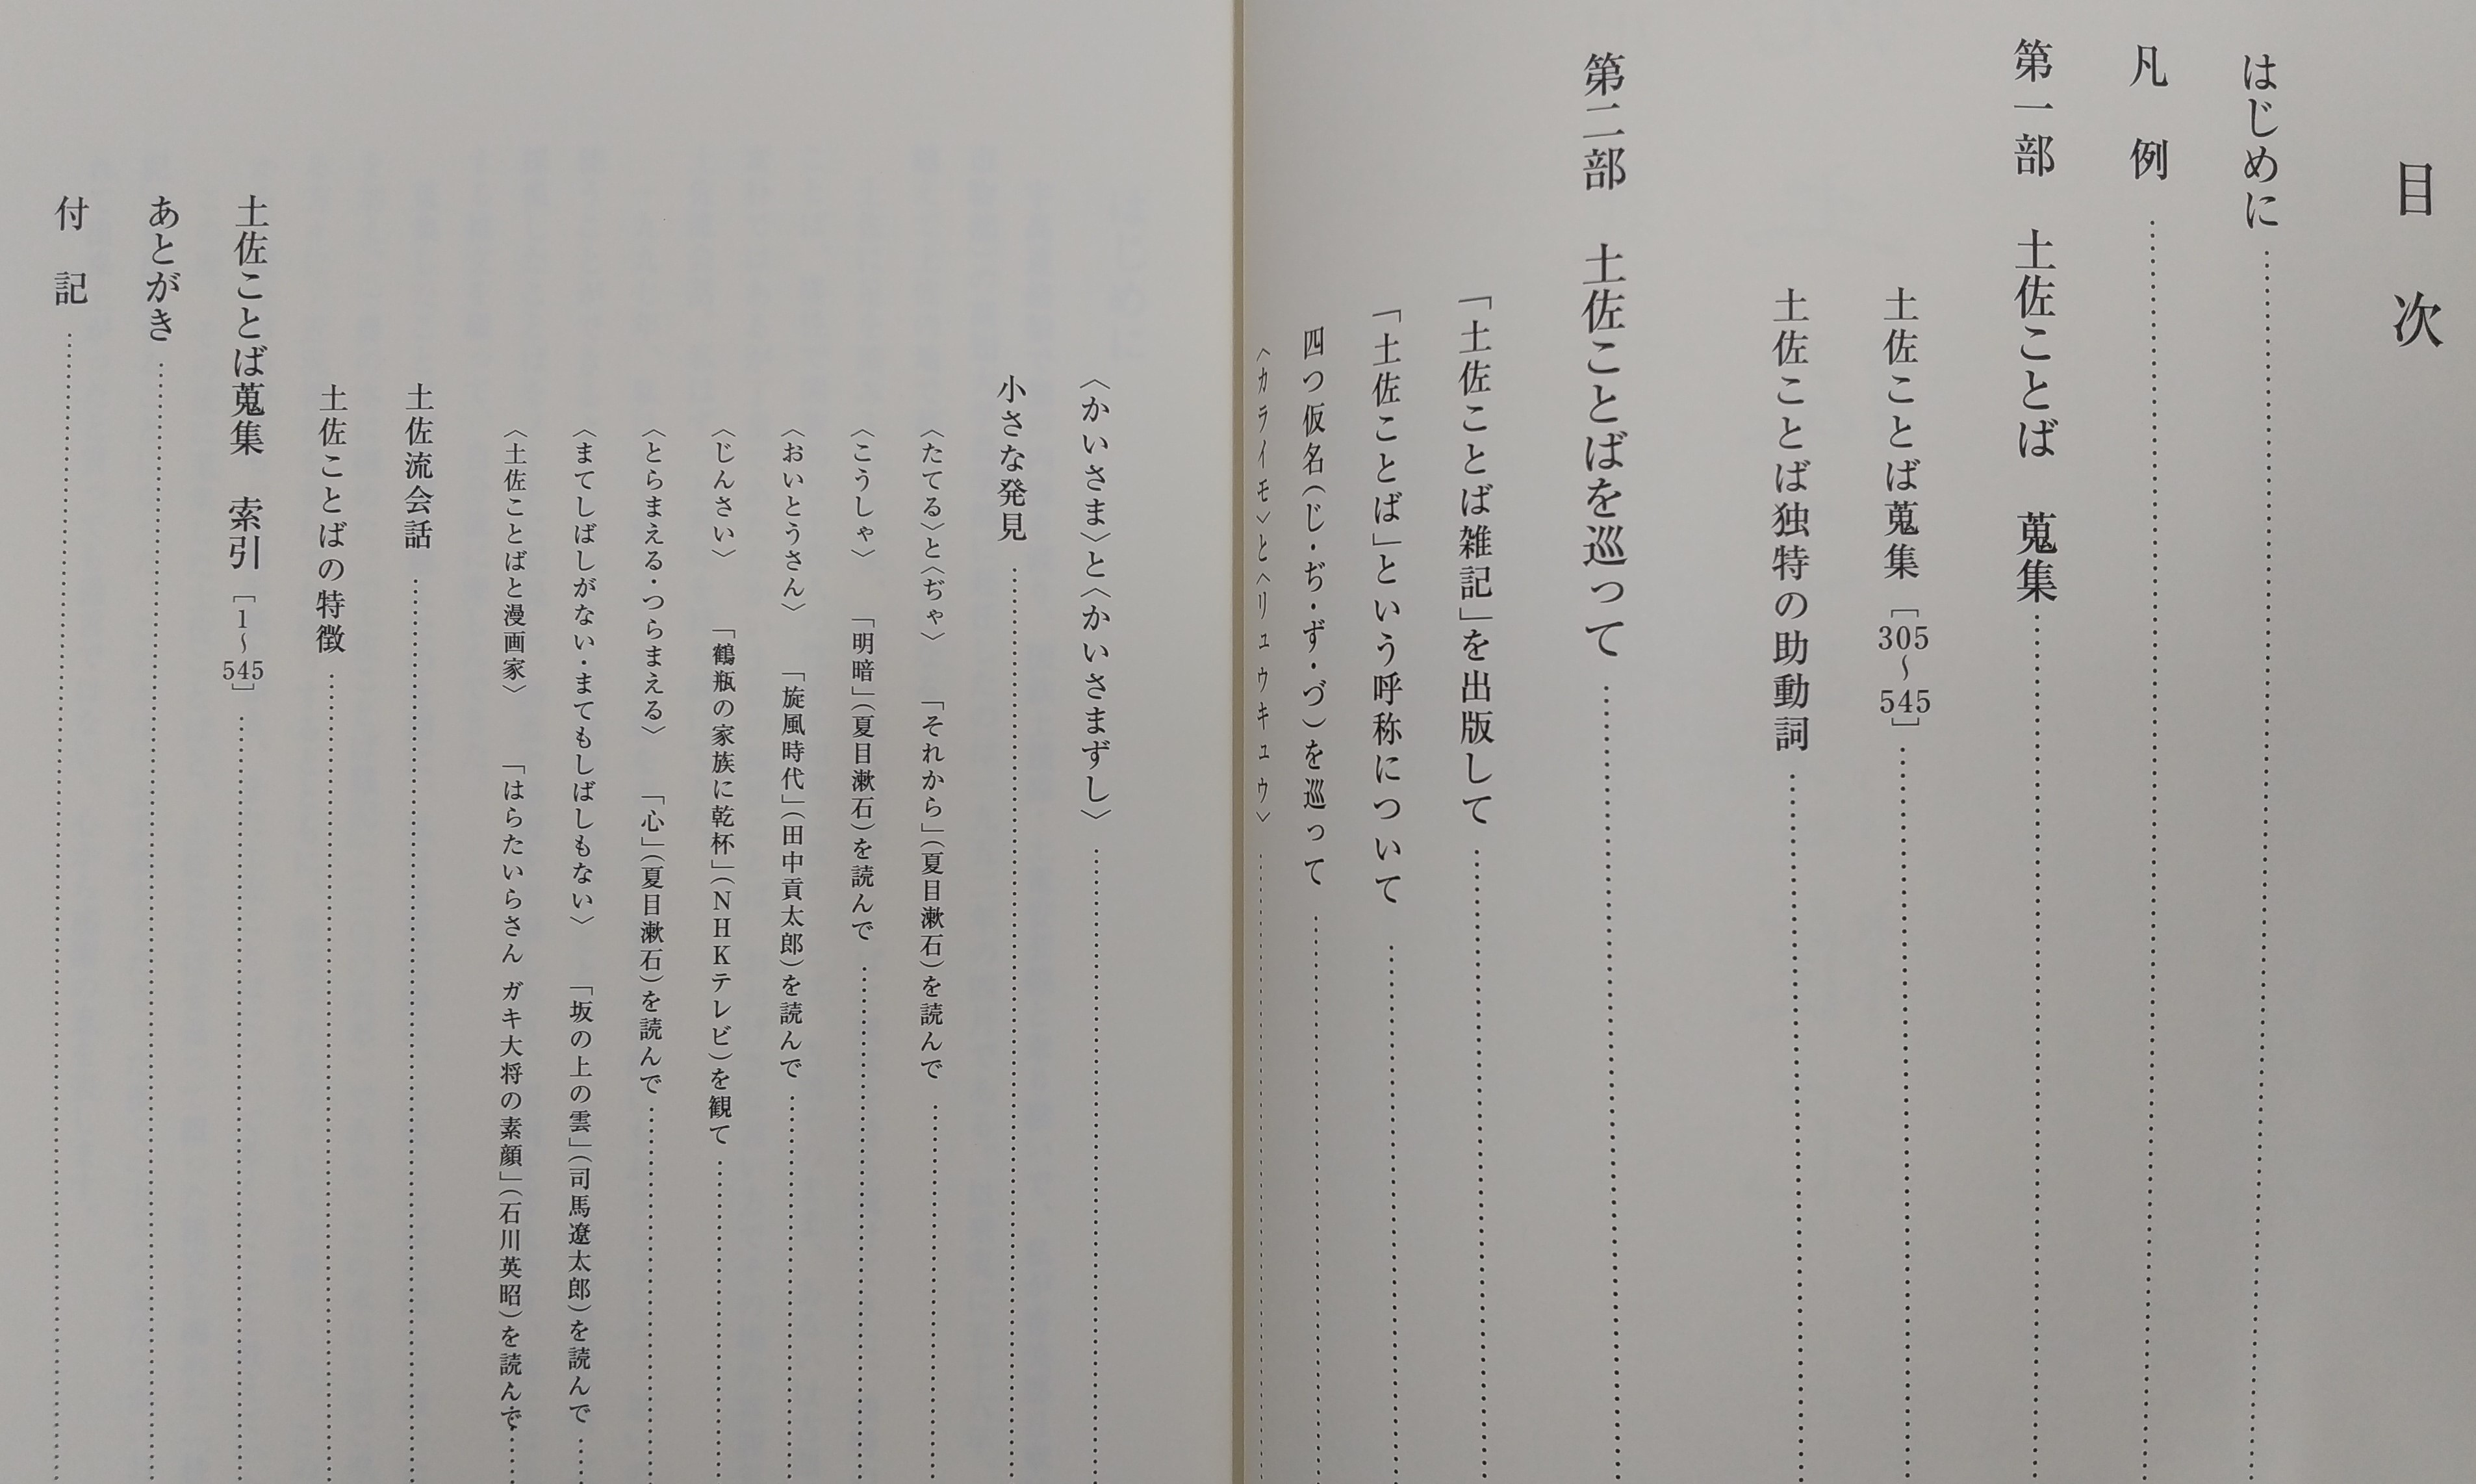 目次
はじめに
凡例
第一部　土佐ことば　蒐集
土佐ことば蒐集［305〜545］
土佐ことば独特の助動詞
第二部　土佐ことばを巡って
「土佐ことば雑記」を出版して
「土佐ことば」という呼称について
四つ仮名(じ・ぢ・ず・づ)を巡って
〈カライモ〉と〈リュウキュウ〉
〈かいさま〉と〈かいさまずし〉
小さな発見
〈たてる〉と〈ぢゃ〉　「それから」(夏目漱石)を読んで
〈こうしゃ〉　「明暗」(夏目漱石)を読んで
〈おいとうさん〉　「旋風時代」(田中貢太郎)を読んで
〈じんさい〉　「鶴瓶の家族に乾杯」(NHKテレビ)を観て
〈とらまえる・つらまえる〉　「心」(夏目漱石)を読んで
〈まてしばしがない・まてもしばしもない〉　「坂の上の雲」(司馬遼太郎)を読んで
〈土佐ことばと漫画家〉　「はらたいらさん ガキ大将の素顔」(石川英昭)を読んで
土佐流会話
土佐ことばの特徴
土佐ことば蒐集　索引［1〜545］
あとがき
付記